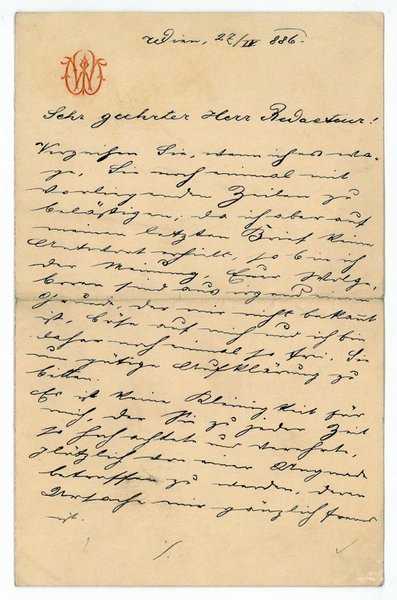 Wien, 27/IV 886.
Sehr geehrter Herr Redacteur!
Verzeihen Sie, wenn ich es wa-
ge, Sie noch einmal mit
vorliegenden Zeilen zu
belästigen; da ich aber auf
meinen letzten Brief keine
Antwort erhielt, so bin ich
der Meinung, Euer Wolge-
boren sind aus irgend einem
Grunde, der mir nicht bekannt
ist, böse auf mich und ich bin
daher noch einmal so frei, Sie
um gütige Aufklärung zu
bitten.
Es ist keine Kleinigkeit für
mich, der Sie zu jeder Zeit
so hoch achtet und verehrte,
plötzlich von einer Ungnade
betroffen zu werden, deren
Ursache mir gänzlich fremd
ist.